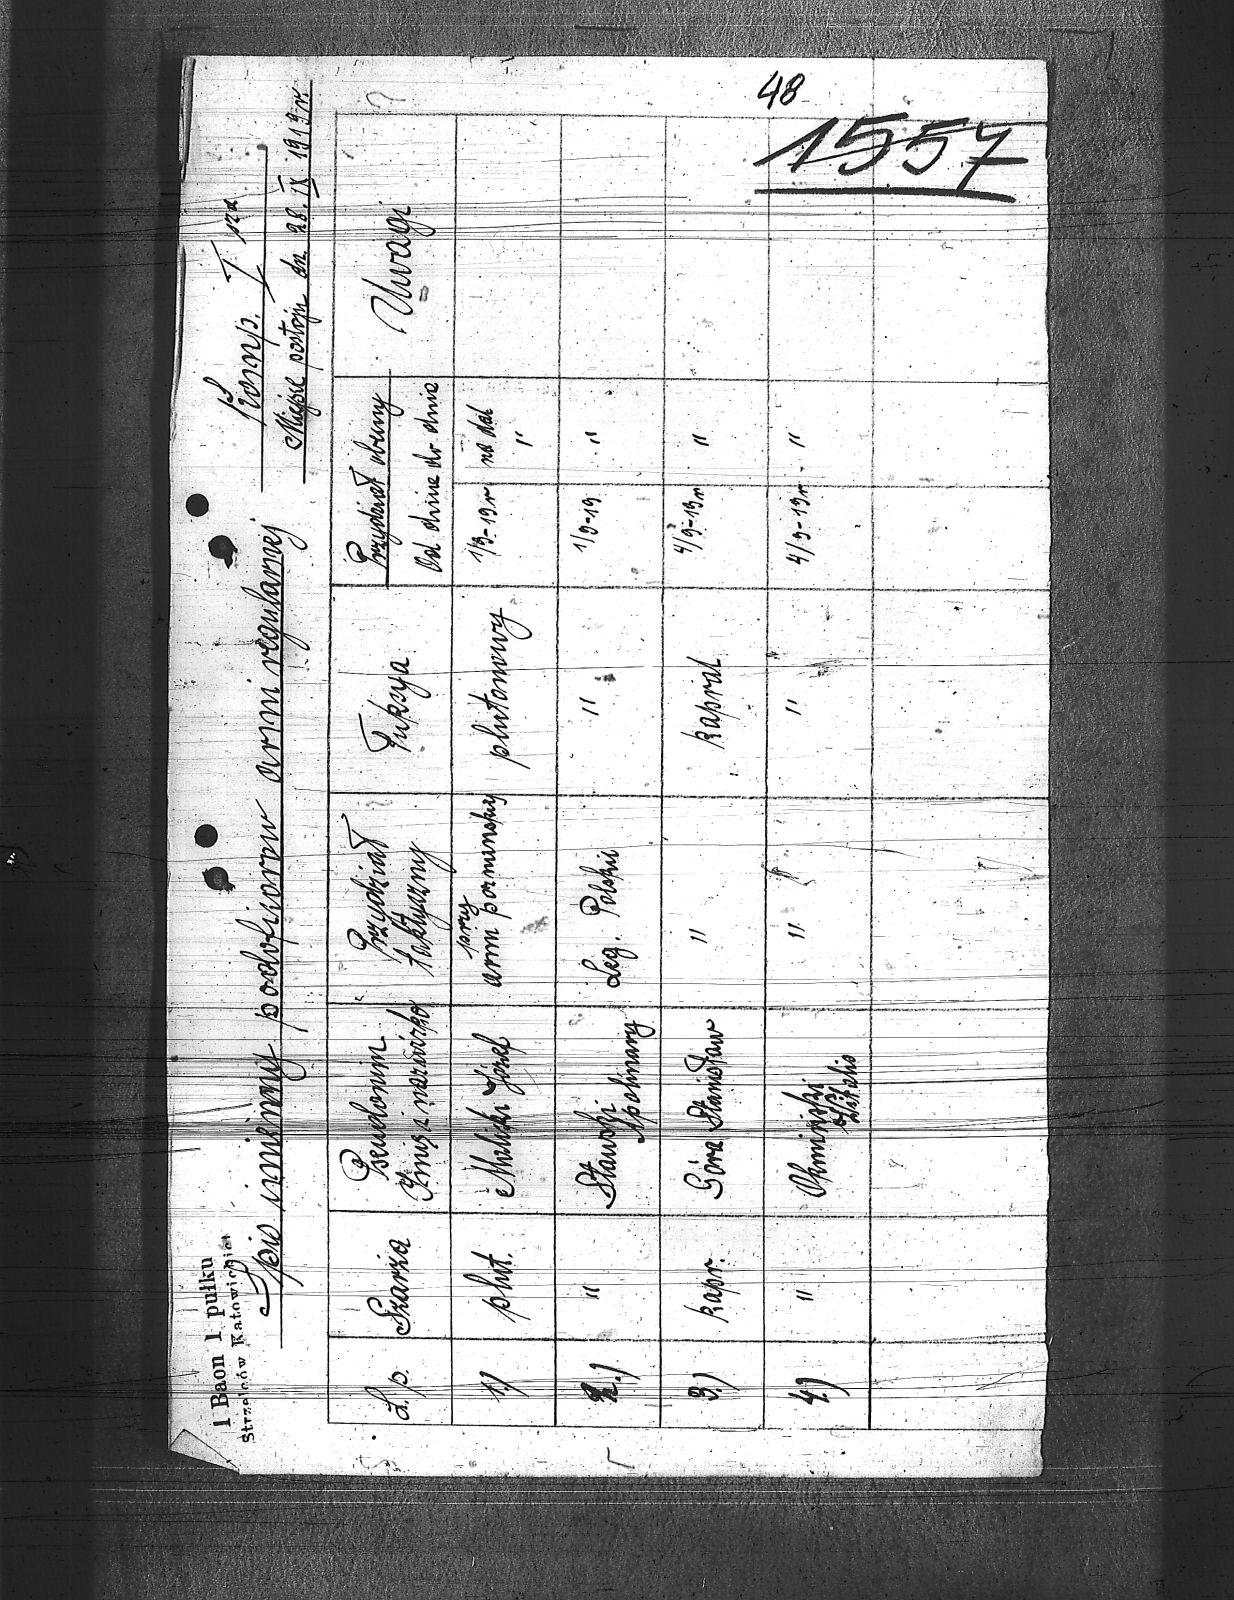 48
1557
1 Baon 1 pułku
Strzelców Katowickich
Komp. I sza
Miejsce postoju dn 28. IX 1919 r.
Spis imienny podoficerow armi regularnej
L. p. Szarża Pseudonim Imię i nazwisko Przydział taktyczny Fukcya Przydział obecny Od dnia do dnia Uwagi
1.) plut. Maliski Józef przy armi poznanskiej plutonowy 1/9-19 r na dal "
2.) " Stawski Apolinary Leg. Polskie " 1/9-19 "
3.) kapr. Góra Stanisław " kapral 4/9-19 r "
4.) " " " 4/9-19 r - "